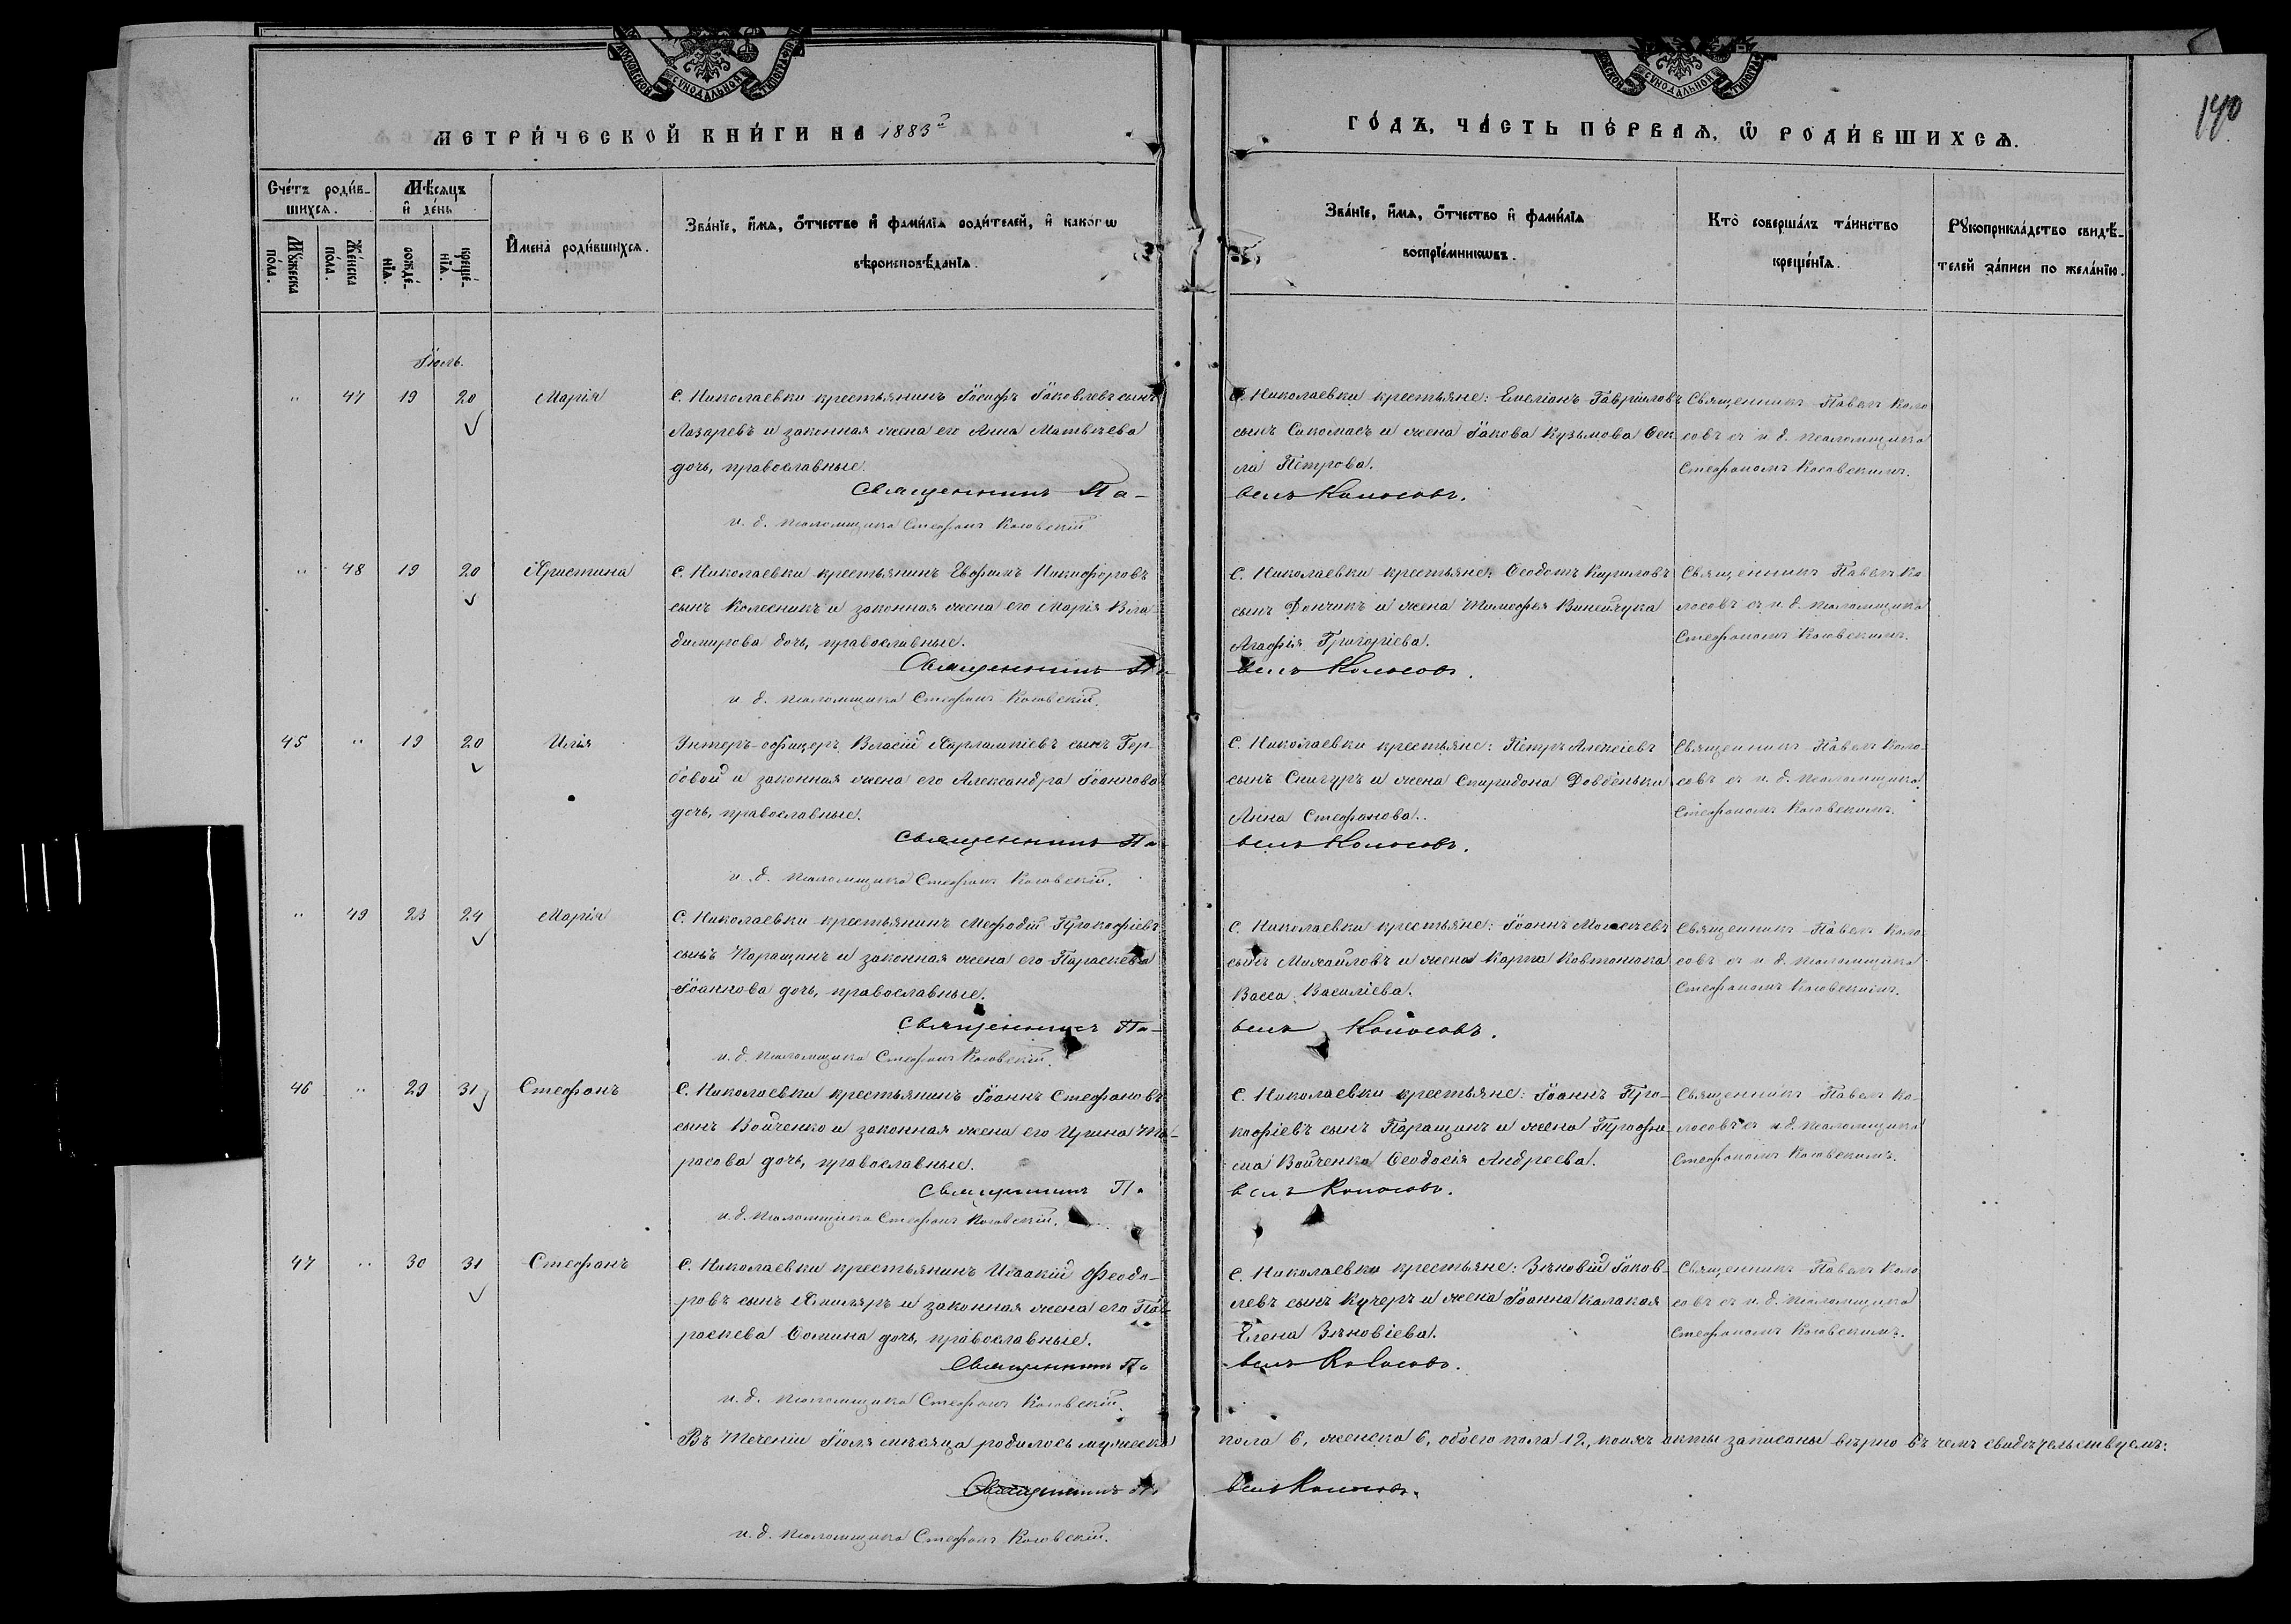 МОСКОВСКОЙ СѴНОДАЛЬНОЙ ТИПОГРАФІИ
МОСКОВСКОЙ СѴНОДАЛЬНОЙ ТИПОГРАФІИ
МЕТРИ́ЧЕСКОЙ КНИ́ГИ НА 1883й
ГО́ДЪ, ЧА́СТЬ ПЕ́РВАѦ, Ѿ РОДИ́ВШИХСѦ.
140
Сче́тъ роди́в-
шихсѧ.
Мѣ́сѧцъ
и҆ де́нь
Мꙋ́жеска
по́ла.
Же́нска
по́ла.
рожде́-
нїѧ.
креще́-
нїѧ.
И҆мена̀ роди́вшихсѧ.
Зва́нїе, и҆́мѧ, ѻ҆́тчество и҆ фами́лїѧ роди́телей, и҆ како́гѡ
вѣроисповѣ́данїѧ.
Зва́нїе, и҆́мѧ, ѻ҆́тчество и҆ фами́лїѧ
воспрїе́мникѡвъ.
Кто̀ соверша́лъ та́инство
креще́нїѧ.
Рꙋкоприкла́дство свидѣ́-
телей за́писи по жела́нїю.
Іюль.
" 47 19 20 Марія
С. Николаевки крестьянинъ Іосифъ Іаковлевъ сынъ
Лазаревъ и законная жена его Анна Матвѣева
дочь, православные.
Священникъ Па-
и. д. псаломщика Стефанъ Косовскій
С. Николаевки крестьяне: Емеліанъ Гавріиловъ
сынъ Сикомасъ и жена Іакова Кузьмова Фек
ла Петрова.
велъ Колосовъ.
Священникъ Павелъ Коло
совъ съ и. д. псаломщика
Стефаномъ Косовскимъ.
" 48 19 20 Христина
С. Николаевки крестьянинъ Евфимъ Никифоровъ
сынъ Колесникъ и законная жена его Марія Вла
димирова дочь, православные.
Священникъ Па-
и. д. псаломщика Стефанъ Косовскій.
С. Николаевки крестьяне: Феодотъ Кириловъ
сынъ Дончикъ и жена Тимофея
Агафія Григоріева.
велъ Колосовъ.
Священникъ Павелъ Ко
лосовъ съ и. д. псаломщика
Стефаномъ Косовскимъ.
45 " 19 20 Илія
Унтеръ-офицеръ Власій Харлампіевъ сынъ Гор-
бовой и законная жена его Александра Іоаннова
дочь, православные.
Священникъ Па-
и. д. псаломщика Стефанъ Косовскій.
С. Николаевки крестьяне: Петръ Алексіевъ
сынъ Снигуръ и жена Спиридона Довбеньки
Анна Стефанова.
велъ Колосовъ.
Священникъ Павелъ Коло-
совъ съ и. д. псаломщика
Стефаномъ Косовскимъ.
" 49 23 24 Марія
С. Николаевки крестьянинъ Мефодій Прокофіевъ
сынъ Паращинъ и законная жена его Параскева
Іоаннова дочь, православные.
Священникъ Па-
и. д. псаломщика Стефанъ Косовскій.
С. Николаевки крестьяне: Іоаннъ Моисеевъ
сынъ Михайловъ и жена Карпа Ковтонюка
Васса Василіева.
велъ Колосовъ.
Священникъ Павелъ Коло-
совъ съ и. д. псаломщика
Стефаномъ Косовскимъ.
46 " 29 31 Стефанъ
С. Николаевки крестьянинъ Іоаннъ Стефановъ
сынъ Войченко и законная жена его Ирина Та-
расова дочь, православные.
Священникъ Па
и. д. псаломщика Стефанъ Косовскій.
С. Николаевки крестьяне: Іоаннъ Про-
кофіевъ сынъ Паращинъ и жена Трофи-
ма Войченка Феодосія Андреева.
велъ Колосовъ.
Священникъ Павелъ Ко-
лосовъ съ и. д. псаломщика
Стефаномъ Косовскимъ.
47 " 30 31 Стефанъ
С. Николаевки крестьянинъ Исаакій Феодо-
ровъ сынъ и законная жена его Па-
раскева Фомина дочь, православные.
Священникъ Па
и. д. псаломщика Стефанъ Косовскій.
С. Николаевки крестьяне: Зѣновій Іаков-
левъ сынъ Кучеръ и жена Іоанна
Елена Зѣновіева.
велъ Колосовъ.
Священникъ Павелъ Коло
совъ съ и. д. псаломщика
Стефаномъ Косовскимъ.
Въ теченіи Іюля мѣсяца родилось мужеска
пола 6, женска 6, обоего пола 12, коихъ акты записаны вѣрно въ чемъ свидѣтельствуемъ:
Священникъ Па
велъ Колосовъ.
и. д. псаломщика Стефанъ Косовскій.